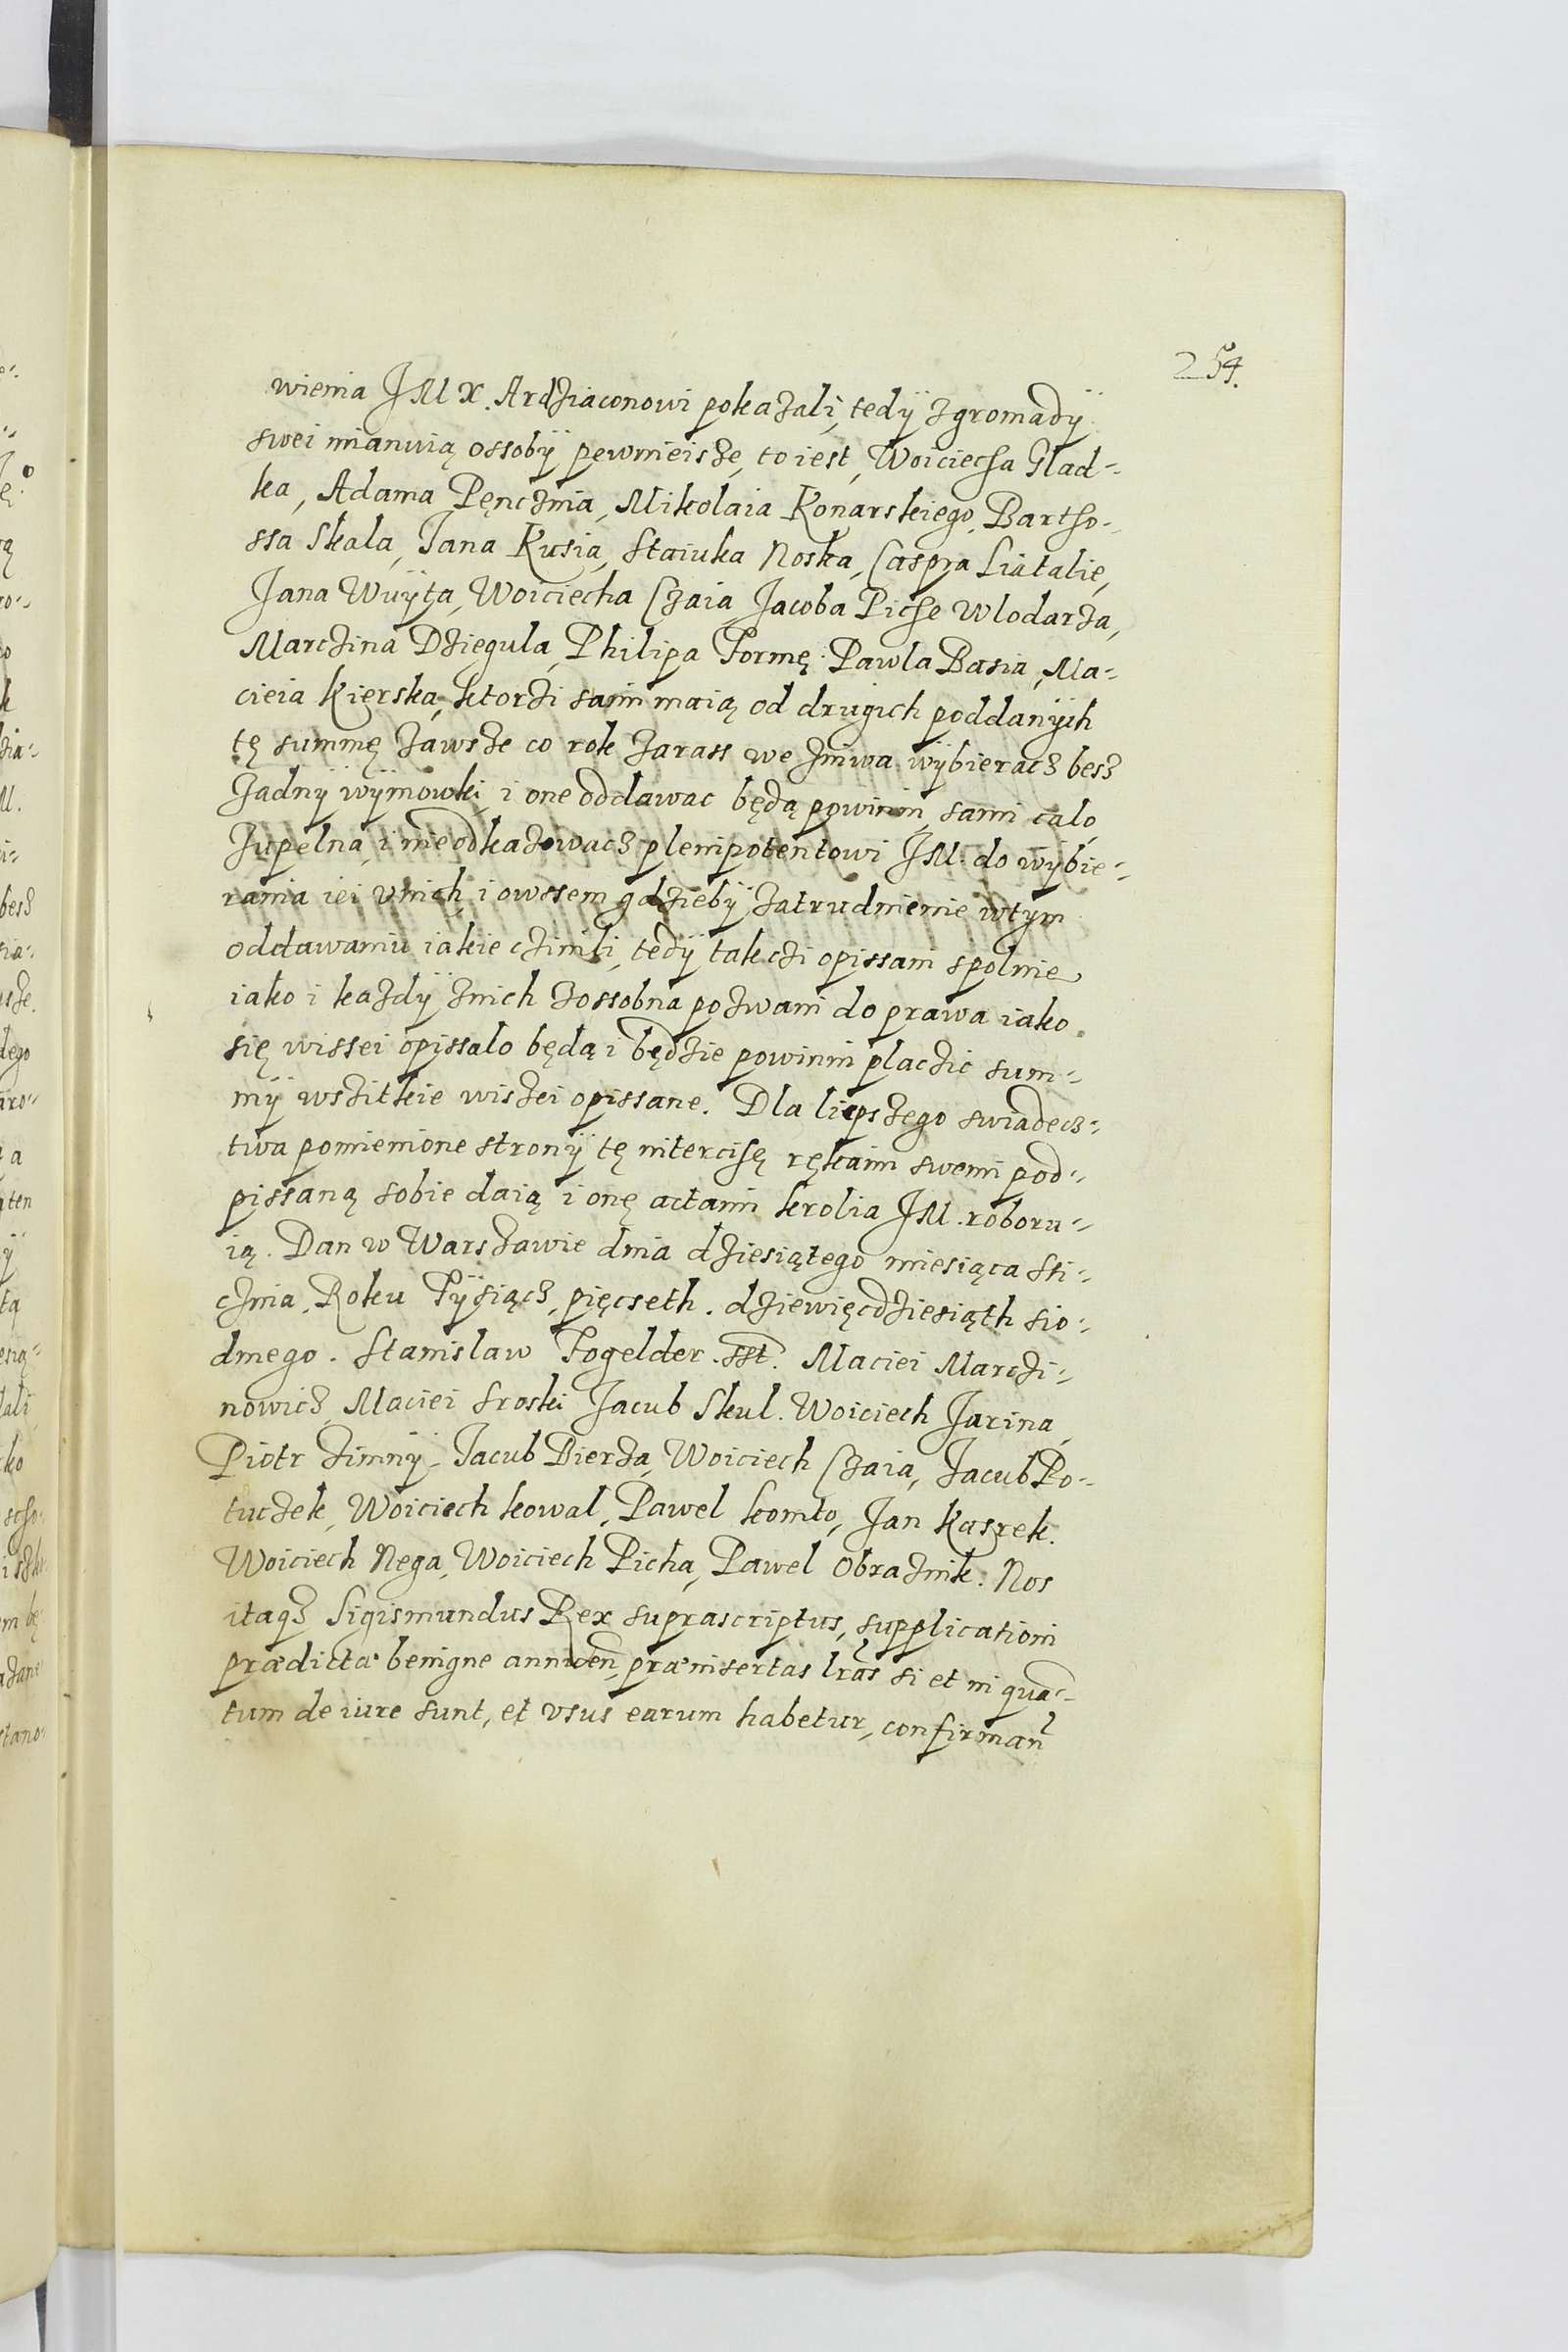 254.
wienia JM X. Ardziaconowi pokazali, tedÿ zgromadÿ
swei mianuią ossobÿ pewnieisze, to iest, Woiciecha Glad-
ka, Adama Pęncznia, Mikolaia Konarskiego, Bartho-
ssa Skala, Jana Kusia, Staiuka Noska, Caspra Liatalie,
Jana Wuÿta, Woiciecha Czaia, Jacoba Piche Wlodarza,
Marczina Dzięgula, Philipa Formę. Pawla Basia, Ma-
cieia Kierska, ktorzi sami maią od drugich poddanÿch
tę summę zawsze co rok zarass we zniwa wÿbieracz besz
zadnÿ wÿmowki, i one oddawac będą powinni, sami calo
zupelna, i nieodkazowacz plenipotentowi JM. do wÿbie-
rania iei vnich, i owssem gdziebÿ zatrudnienie wtym
oddawaniu iakie czinili, tedÿ takczi opissani spolnie
iako i kazdÿ znich zossobna pozwani do prawa iako
się wissei opissalo będą i będzie powinni placzic sum-
mÿ wszitkie wiszei opissane. Dla liepszego swiadecz-
twa pomienione stronÿ tę intercisę rękami swemi pod-
pissaną sobie daią i onę actami krolia JM. roboru-
ią. Dan w Warszawie dnia dziesiątego miesiąca Sti-
cznia, Roku Tÿsiącz, pięcseth. dziewięcdziesiąth sio-
dmego. Stanislaw Fogelder. sst. Maciei Marczi-
nowicz, Maciei Sroski Jacub Skul. Woiciech Jarina,
Piotr Zimnÿ, Jacub Bierza, Woiciech Czaia, Jacub Po-
tuczek, Woiciech kowal, Pawel komło, Jan Kaszek.
Woiciech Nega, Woiciech Picha, Pawel Obraznik. Nos
itaqz Sigismundus Rex suprascriptus, supplicationi
prædictæ benigne annuen, præinsertas lras si et in qua-
tum de iure sunt, et vsus earum habetur, confirman